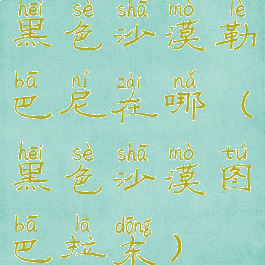 hēi sè shā mò lè
黑色沙漠勒
bā ní zài nǎ
巴尼在哪(
hēi sè shā mò tú
黑色沙漠图
bā lā dōng
巴拉东)